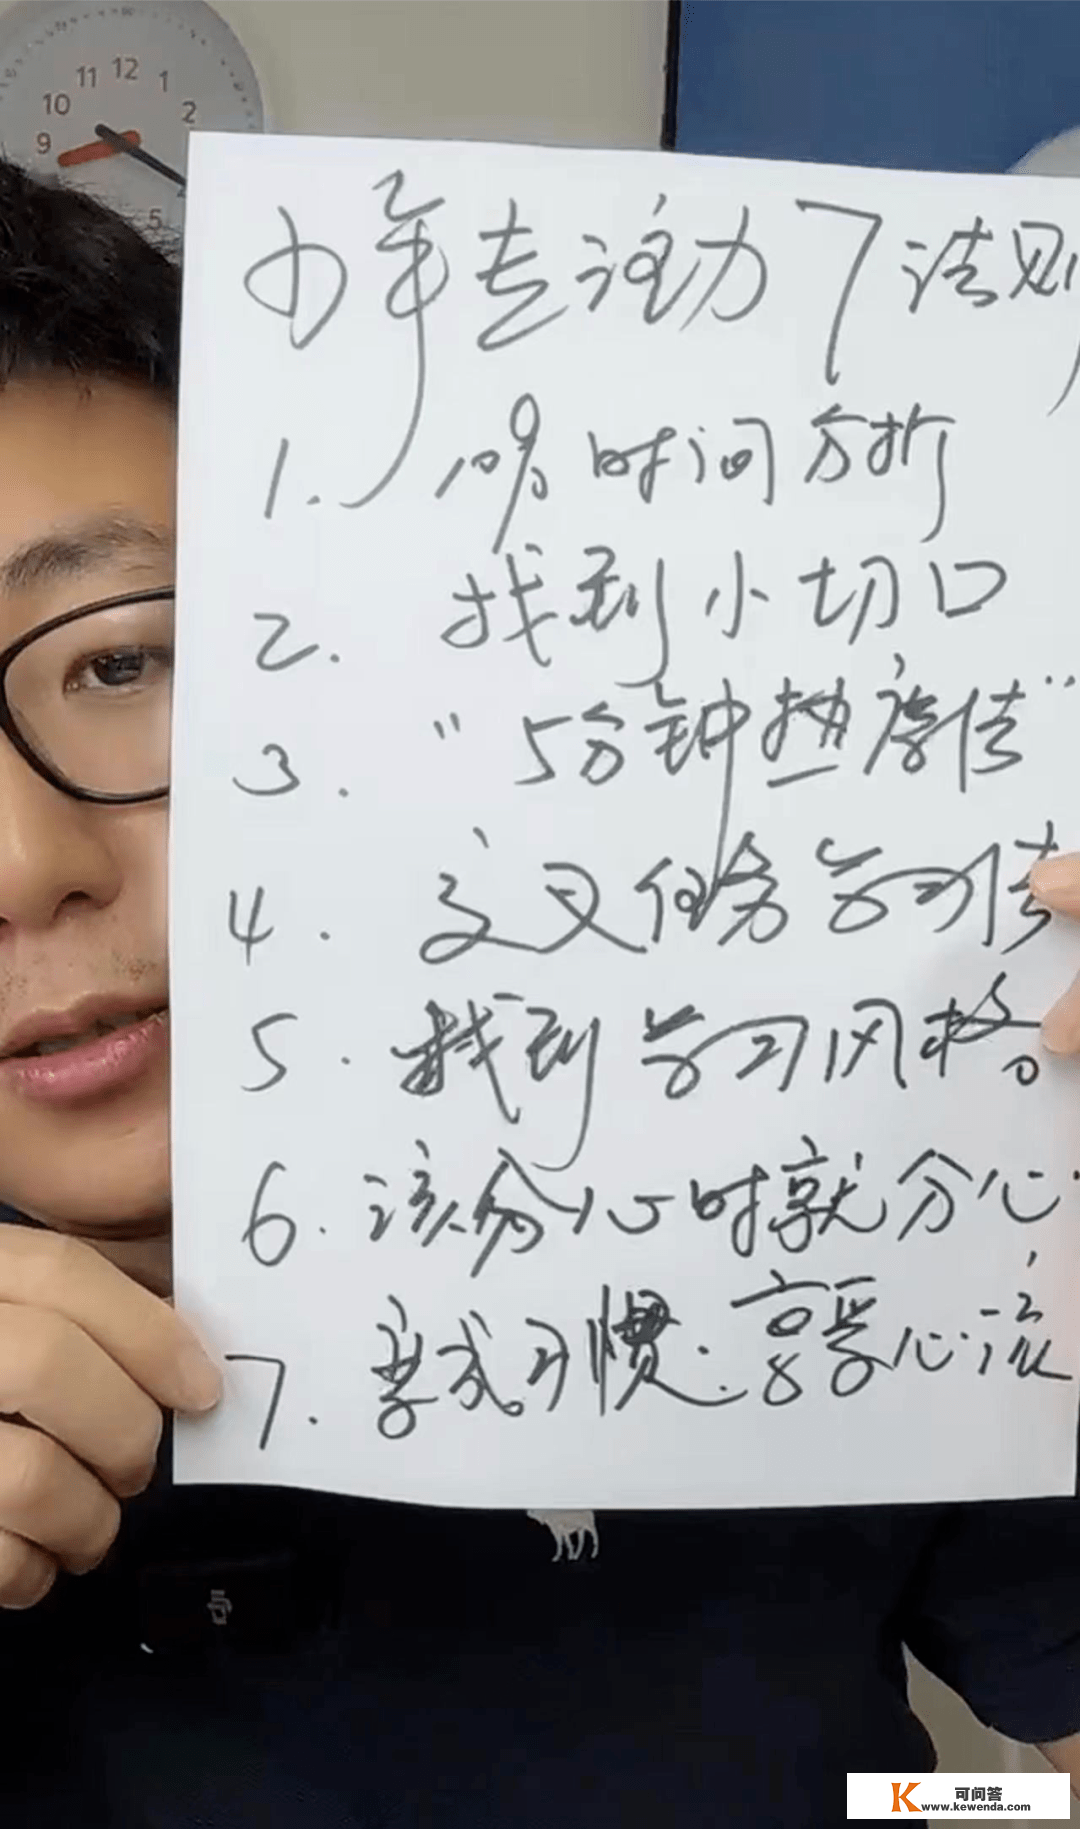 11 12 1
10 2
9
5
少年专注力7法则
1. 时间分析
2. 找到小切口
3. “5分钟热度法”
4. 交叉任务学习法
5. 找到学习风格
6. 该分心时就分心
7. 养成习惯. 享受心流
可问答
www.kewenda.com